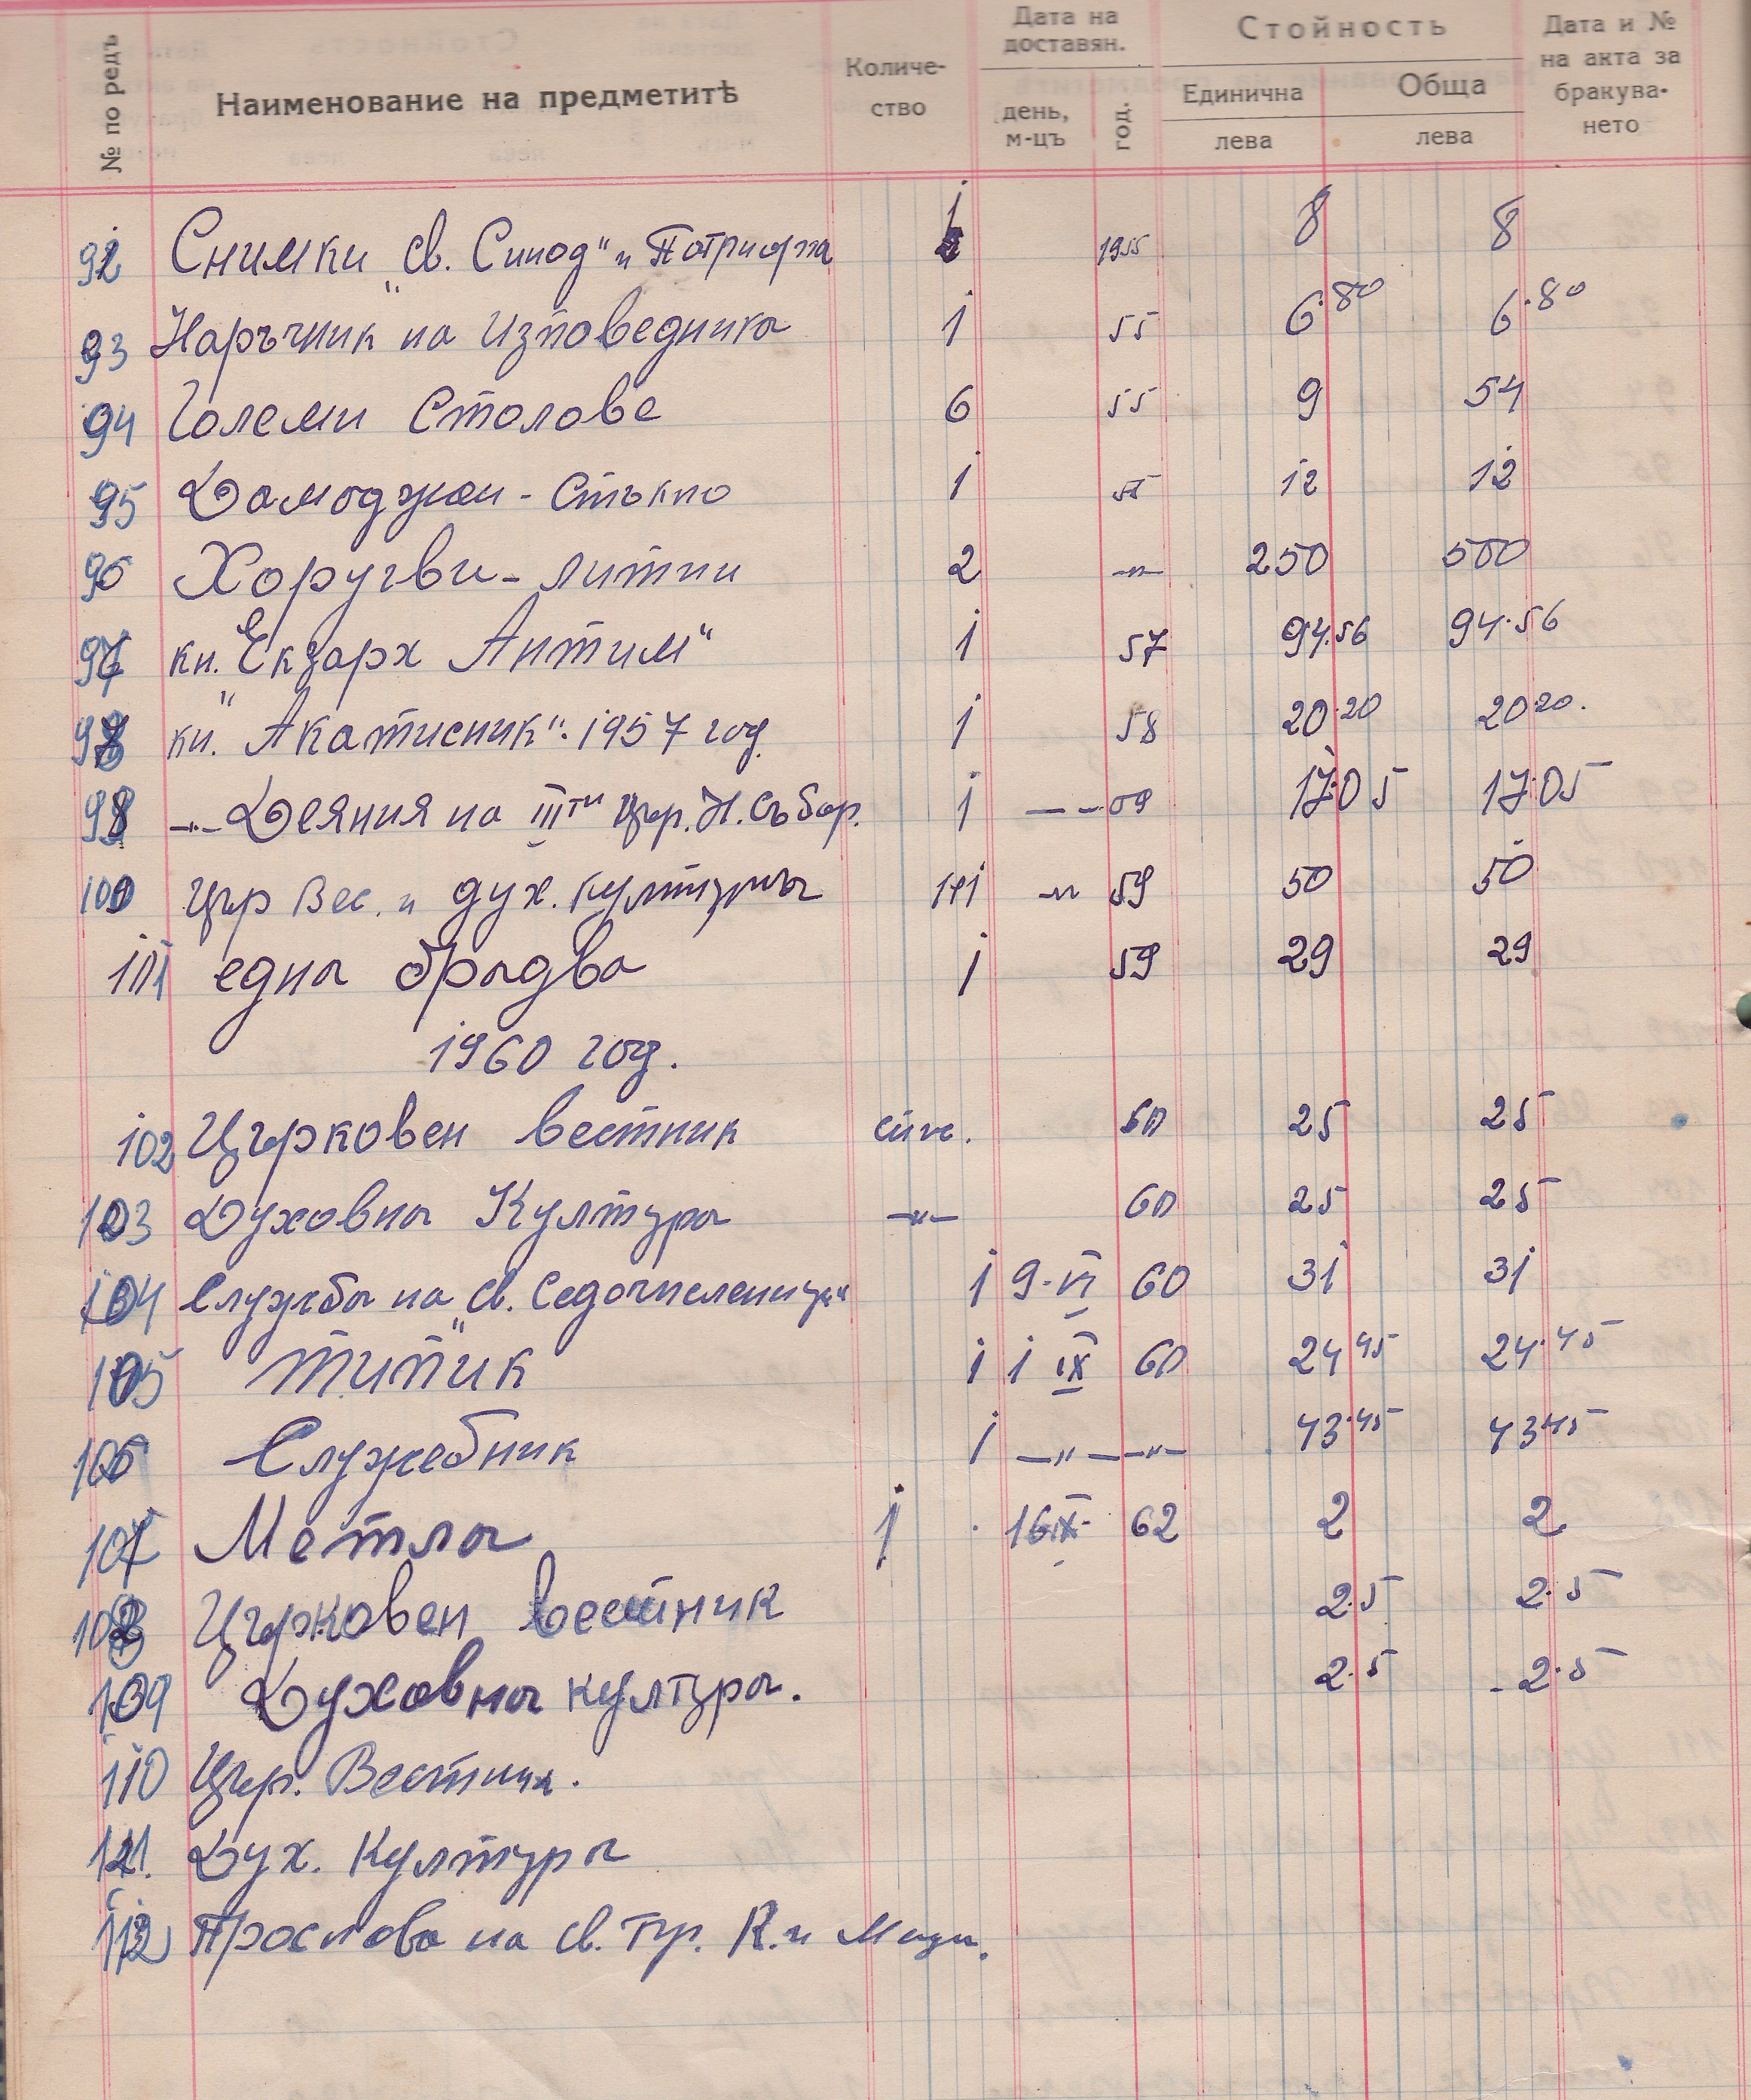 № по редъ Наименование на предметитѣ Количе-ство Дата на доставян. день, м-цъ год. Стойность Единична лева Обща лева Дата и № на акта за бракува-нето
92 Снимки „Св. Синод" и Патриарха 1 1955 8 8
93 Наръчник на Изповедника 1 55 6.80 6.80
94 Големи Столове 6 55 9 54
95 Дамоджан - Стъкло 1 55 12 12
96 Хоругви - литии 2 —"— 250 500
97 кн. „Екзарх Антим" 1 57 94.56 94.56
98 кн. „Акатисник". 1957 год. 1 58 20.20 20.20.
99 —"— Деяния на IIIти Цър. Н. Събор. 1 — — 09 17.05 17.05
100 Цър Вес. и дух. култура 1+1 —"— 59 50 50
101 една брадва 1 59 29 29
1960 год.
102 Църковен вестник 60 25 25
103 Духовна Култура —"— 60 25 25
104 Служба на „Св. Седочисленици" 1 9.VI 60 31 31
105 Типик 1 1 IX 60 24.45 24.45
106 Служебник 1 —"— —"— 43.45 43.45
107 Метла 1 16 IX. 62 2 2
108 Църковен вестник 2.5 2.5
109 Духовна култура. 2.5 2.5
110 Цър. Вестник.
111. Дух. Култура
112 Прослава на Св. Пр. К. и